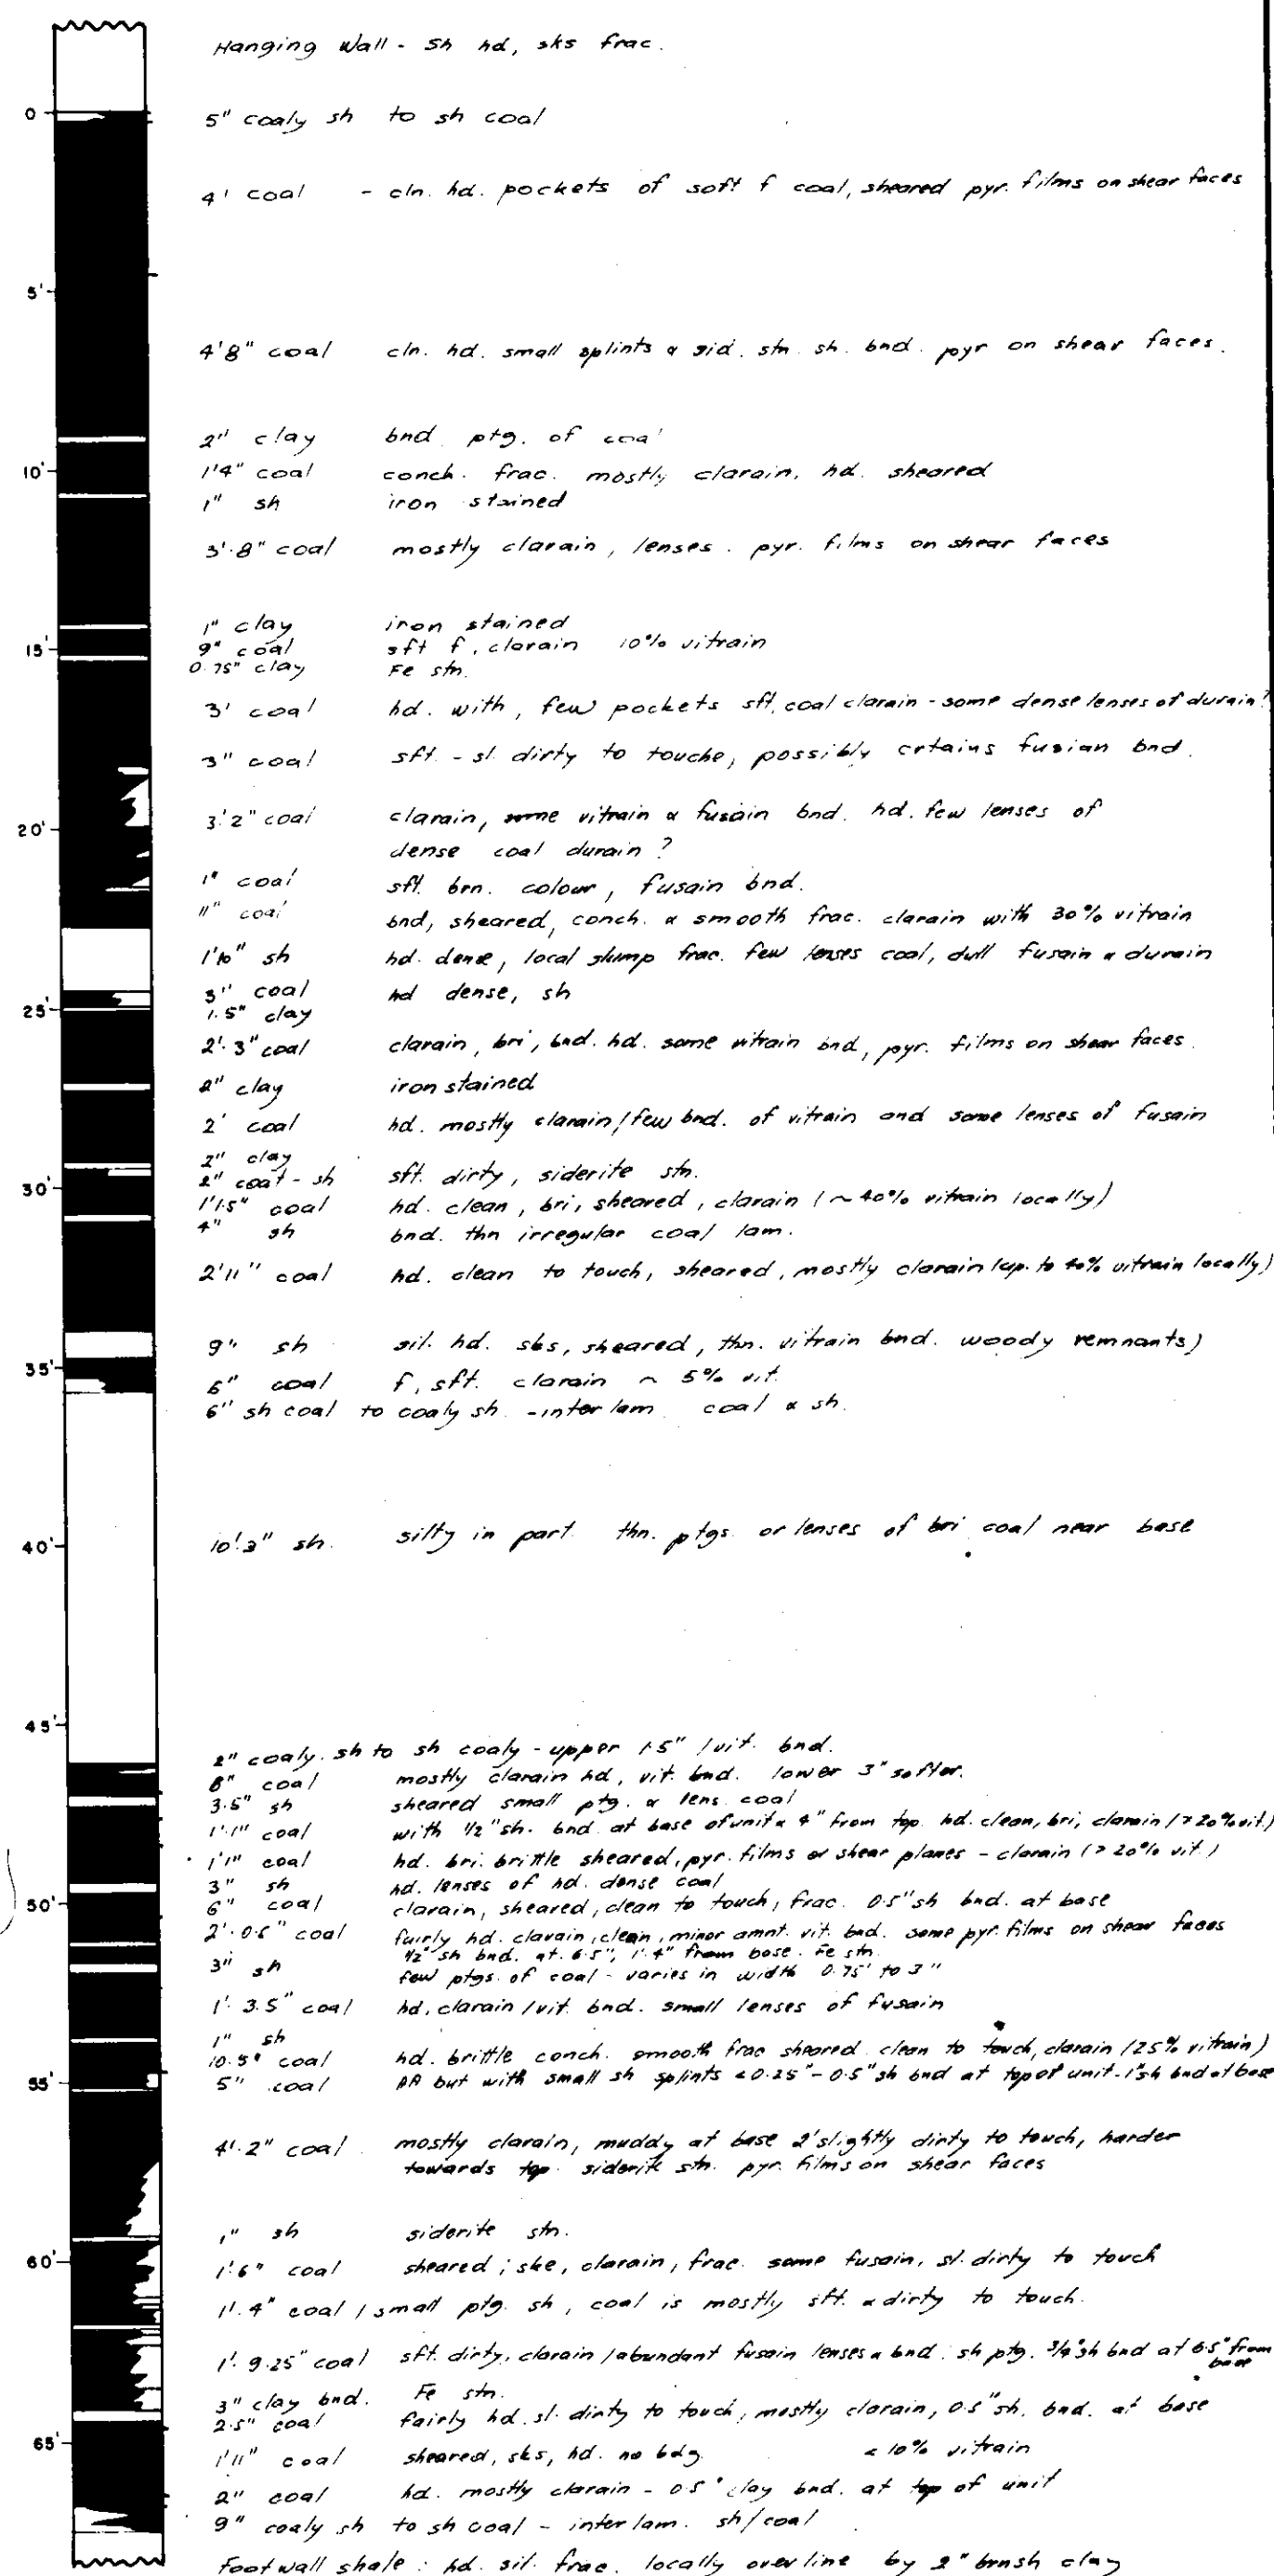 Hanging Wall - Sh hd, sks frac.
0
5" coaly sh to sh coal
4' coal - cln. hd. pockets of soft f coal, sheared pyr. films on shear faces
5'
4'8" coal cln. hd. small splints & sid. stn. sh. bnd. pyr on shear faces.
2" clay bnd ptg. of coal
10'
1'4" coal conch. frac. mostly clarain, hd. sheared
1" sh iron stained
3'.8" coal mostly clarain, lenses. pyr. films on shear faces
1" clay iron stained
15'
9" coal sft f, clarain 10% vitrain
0.75" clay Fe stn.
3' coal hd. with, few pockets sft, coal clarain - some dense lenses of durain?
3" coal sft. - sl. dirty to touche, possibly crtains fusian bnd.
20'
3'.2" coal clarain, some vitrain & fusain bnd. hd. few lenses of
dense coal durain ?
1" coal sft. brn. colour, fusain bnd.
11" coal bnd, sheared, conch. & smooth frac. clarain with 30% vitrain
1'10" sh hd. dense, local slump frac. few lenses coal, dull fusain & durain
3" coal hd dense, sh
25'
1.5" clay
2'.3" coal clarain, bri, bnd. hd. some vitrain bnd, pyr. films on shear faces.
2" clay iron stained
2' coal hd. mostly clarain / few bnd. of vitrain and some lenses of fusain
2" clay
2" coal - sh sft. dirty, siderite stn.
30'
1'1.5" coal hd. clean, bri, sheared, clarain (~ 40% vitrain locally)
4" sh bnd. thn irregular coal lam.
2'11" coal hd. clean to touch, sheared, mostly clarain (up. to 40% vitrain locally)
9" sh sil. hd. sks, sheared, thn. vitrain bnd. woody remnants)
35'
6" coal f, sft. clarain ~ 5% vit.
6" sh coal to coaly sh. - inter lam. coal & sh.
40'
10'.3" sh. silty in part. thn. ptgs. or lenses of bri coal near base
45'
2" coaly. sh to sh coaly - upper 1.5" / vit. bnd.
8" coal mostly clarain hd, vit. bnd. lower 3" softer.
3.5" sh sheared small ptg. & lens. coal
1'.1" coal with 1/2" sh. bnd. at base of unit & 4" from top. hd. clean, bri, clarain (> 20% vit.)
1'1" coal hd. bri. brittle sheared, pyr. films or shear planes - clarain (> 20% vit.)
3" sh hd. lenses of hd. dense coal
50'
6" coal clarain, sheared, clean to touch, frac. 0.5" sh bnd. at base
2'.0.5" coal fairly hd. clarain, clean, minor amnt. vit. bnd. some pyr. films on shear faces
1/2" sh bnd. at. 6.5", 1'.4" from base. Fe stn.
3" sh few ptgs. of coal - varies in width 0.75' to 3"
1'. 3.5" coal hd, clarain / vit. bnd. small lenses of fusain
1" sh
10.5" coal hd. brittle conch. smooth frac sheared clean to touch, clarain (25% vitrain)
55'
5" coal AA but with small sh splints < 0.25" - 0.5" sh bnd at top of unit - 1" sh bnd at base
4'.2" coal mostly clarain, muddy at base 2' slightly dirty to touch, harder
towards top. siderite stn. pyr. films on shear faces
1" sh siderite stn.
60'
1'.6" coal sheared; ske, clarain, frac. some fusain, sl. dirty to touch
1'. 4" coal / small ptg. sh, coal is mostly sft. & dirty to touch.
1'. 9.25" coal sft. dirty, clarain / abundant fusain lenses & bnd. sh ptg. 3/4" sh bnd at 6.5" from
base
3" clay bnd. Fe stn.
2.5" coal fairly hd. sl. dirty to touch, mostly clarain, 0.5" sh. bnd. at base
65'
1'11" coal sheared, sks, hd. no bdg. < 10% vitrain
2" coal hd. mostly clarain - 0.5" clay bnd. at top of unit
9" coaly sh to sh coal - inter lam. sh/coal
Footwall shale: hd. sil. frac. locally over line by 2" brnsh clay